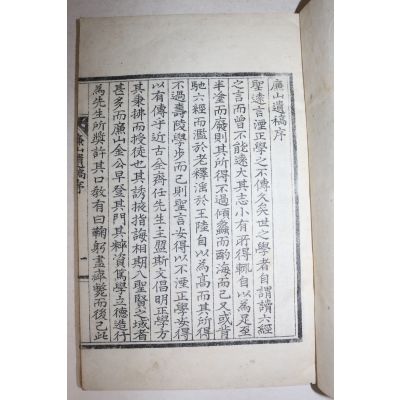 廣山遺稿序
聖遠言湮正學之不傳久矣世之學者自謂讀六經
之言而曾不能遠大其志小有所得輒自以為足至
半塗而廢其所得不過傾蠡而酌海而已又或背
馳六經而濫於老釋淫於王陸自以為高而其所得
不過壽陵學步而已則聖言安得以不湮正學安得
以有傳乎近古全齋任先生主盟斯文倡明正學方
其秉拂而授徒也其誘掖指誨相期入聖賢之域者
甚多而廣山金公早登其門其粹資篤學立德造行
為先生所奬許其口敎有曰鞠躬盡瘁斃而後已此
廣山遺稿序
一